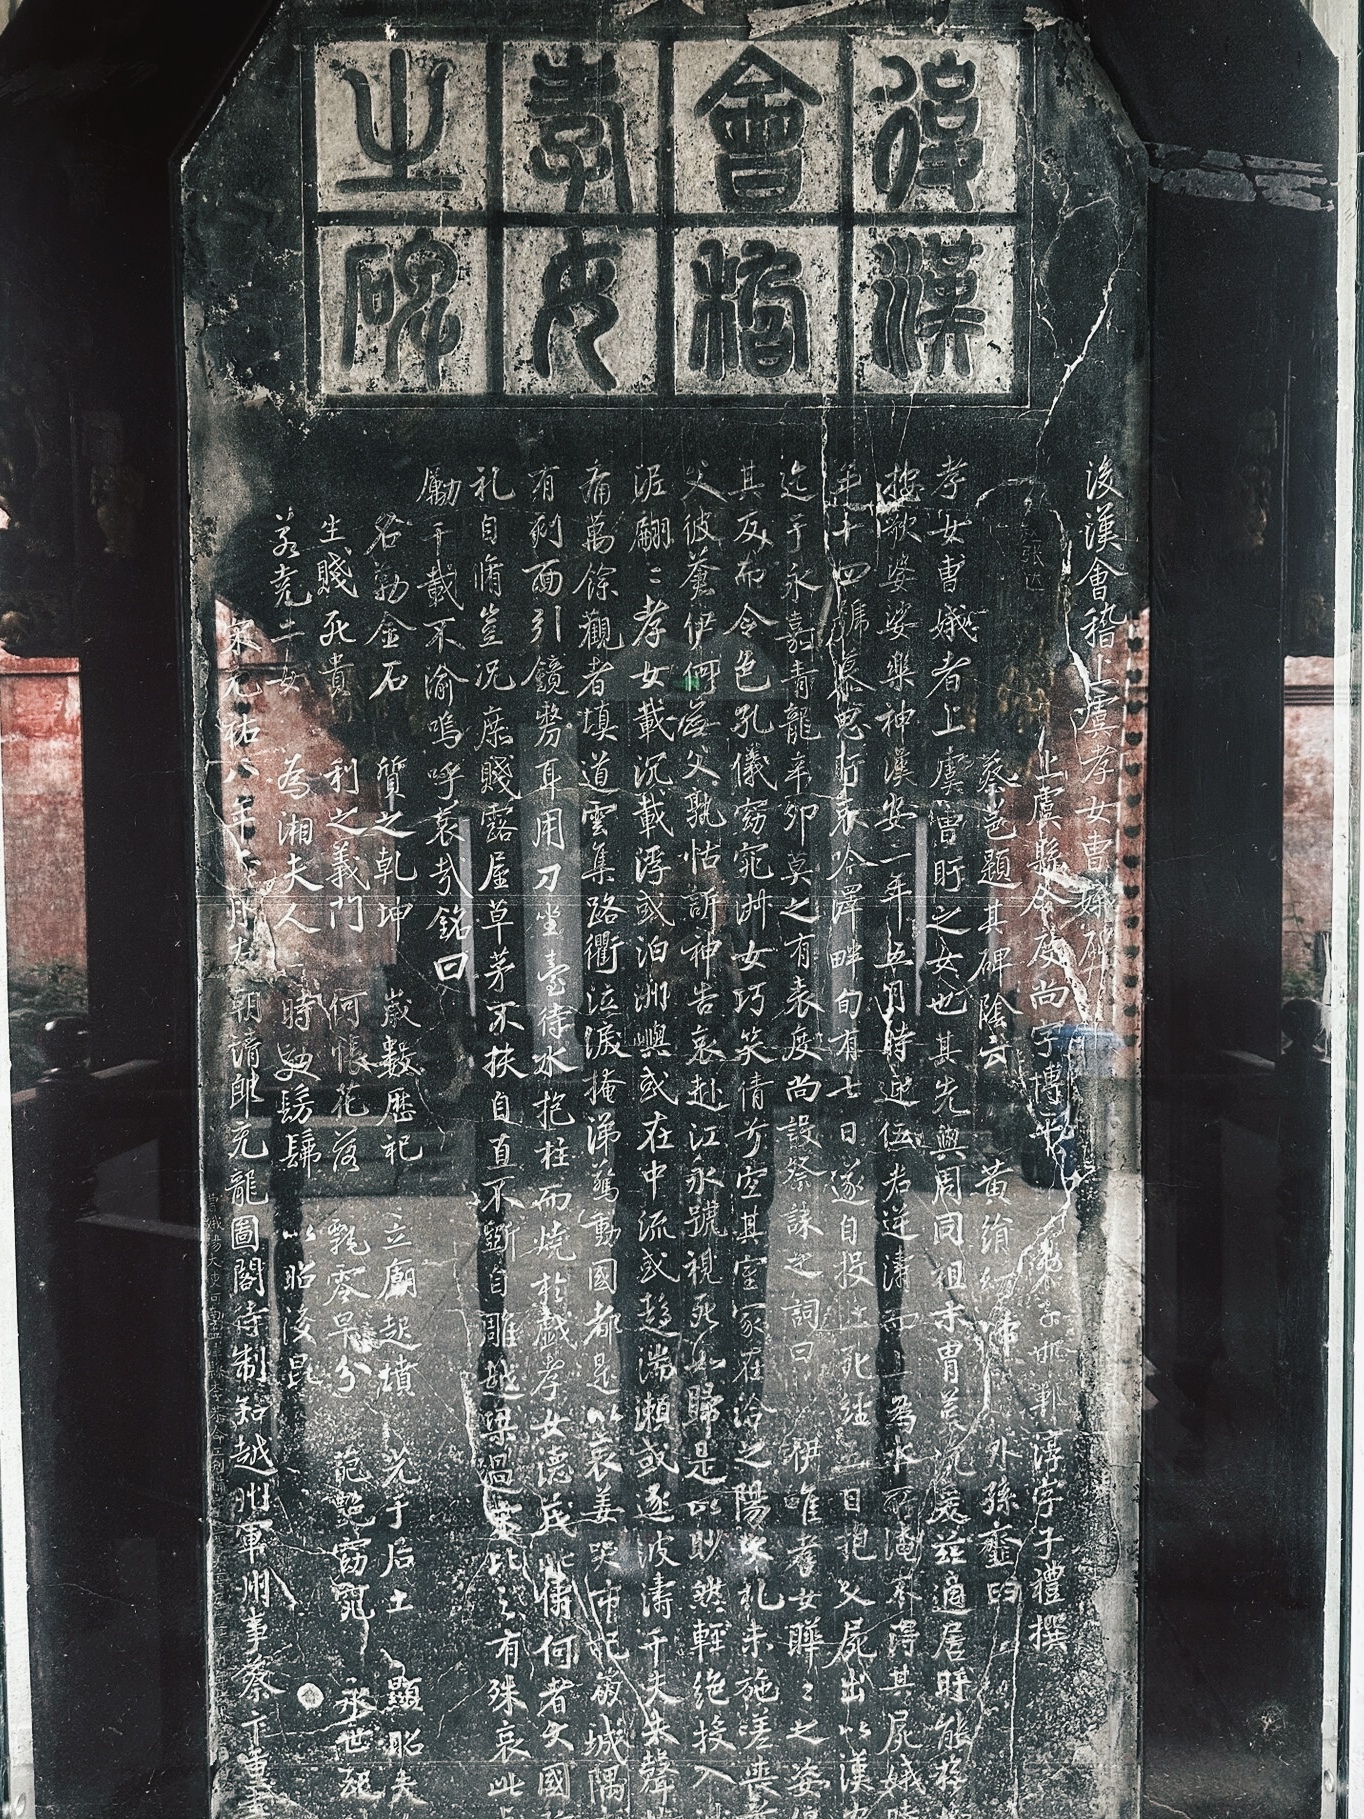 後漢
會稽
孝女
之碑
後漢會稽上虞孝女曹娥碑
上虞縣令度尚字博平 弟子邯鄲淳字子禮撰
蔡邕題其碑陰云 黃絹幼婦 外孫齏臼
孝女曹娥者上虞曹盱之女也其先與周同祖末胄荒沉爰茲適居盱能撫
按歌婆娑樂神漢安二年五月時迎伍君逆濤而上為水所淹不得其屍娥時
年十四號慕思盱哀吟澤畔旬有七日遂自投江死經五日抱父屍出以漢安
迄于永嘉青龍辛卯莫之有表度尚設祭誄之詞曰 伊惟孝女曄〻之姿
其反而令色孔儀窈窕淑女巧笑倩兮宜其室家在洽之陽大礼未施嗟喪
父彼蒼伊何無父孰怙訴神告哀赴江永號視死如歸是以眇然輕絕投入
泥翩〻孝女載沉載浮或泊洲嶼或在中流或趨湍瀨或逐波濤千夫失聲
痛萬餘觀者填道雲集路衢泣淚掩涕驚動國都是以哀姜哭市杞崩城隅
有剋面引鏡剺耳用刀坐臺待水抱柱而燒於戲孝女德茂此儔何者大國
礼自脩豈况庶賤露屋草茅不扶自直不斲自雕越梁過宋比之有殊哀此
勵千載不渝嗚呼哀哉銘曰
名勒金石 質之乾坤 歲數歷祀 立廟起墳 光于后土 顯昭夫
生賤死貴 利之義門 何悵花落 飄零早分 葩艷窈窕 永世配
若堯二女 為湘夫人 時效髣髴 以昭後昆
宋元祐八年 朝請郎充龍圖閣待制知越州軍州事蔡卞重書